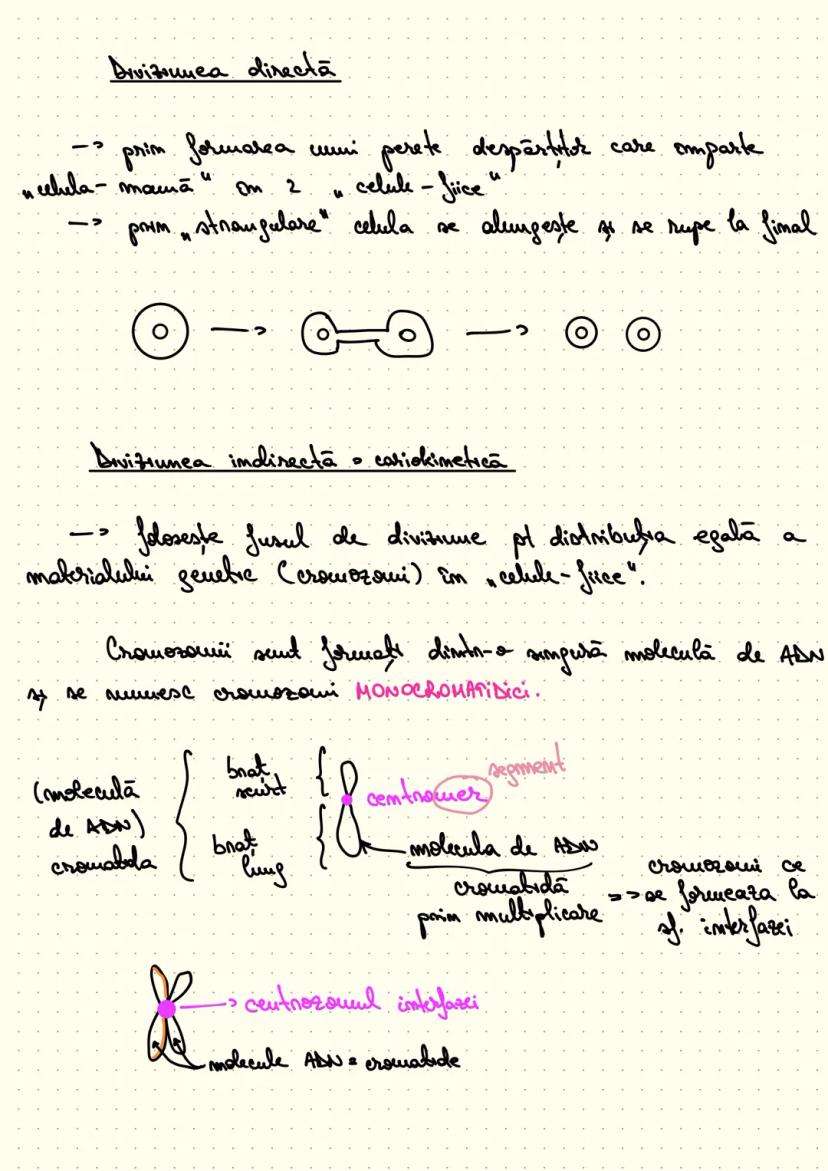 Diviziunea directă
-> prin formarea unui perete despărțitor care imparte
„celula-mamă" în 2 „celule-fiice"
-> prin „strangulare" celula se alungește și se rupe la final
Diviziunea indirectă = cariokinetică
-> folosește fusul de diviziune pt distribuția egală a
materialului genetic (cromozomi) în „celule-fiice".
Cromozomii sunt formați dintr-o singură moleculă de ADN
și se numesc cromozomi MONOCROMATIDICI.
(moleculă
de ADN)
cromatida
braț
scurt
braț
lung
centromer
segment
molecula de ADN
cromatidă
prin multiplicare
=> cromozomi ce
se formeaza la
sf. interfazei
-> centrozomul interfazei
molecule ADN = cromatide